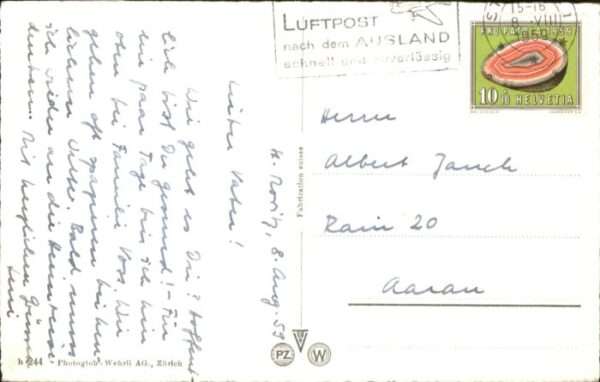 LUFTPOST
nach dem AUSLAND
schnell und zuverlässig
15-16
8. VIII
1959
PRO PATRIA 1959
10+10 HELVETIA
St. Moritz, 8. Aug. 59
Lieber Vater!
Wie geht es Dir? Hoffent-
lich bist Du gesund! – Für
ein paar Tage bin ich hier
oben bei Familie Voss. Wir
gehen oft spazieren bei herr-
lichem Wetter. Bald muss
ich wieder an die Heimreise
denken. Mit herzlichen Grüssen
Herrn
Albert Jauch
Rain 20
Aarau
Fabrication suisse
PZ
W
h 244 - Photoglob-Wehrli AG., Zürich